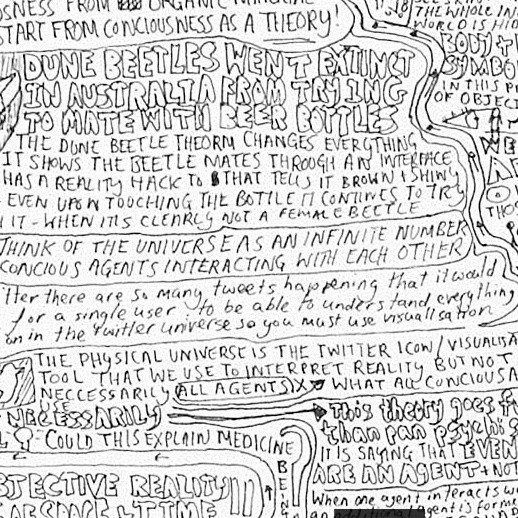 SNESS FROM ORGANIC MACHINE
START FROM CONCIOUSNESS AS A THEORY!
THE WHOLE IN
WORLD IS HI
BODY +
SYMBO
IN THIS P
OF OBJEC
DUNE BEETLES WENT EXTINCT
IN AUSTRALIA FROM TRYING
TO MATE WITH BEER BOTTLES
THE DUNE BEETLE THEORM CHANGES EVERYTHING
IT SHOWS THE BEETLE MATES THROUGH AN INTERFACE
HAS A REALITY HACK TO THAT TELLS IT BROWN + SHINY
EVEN UPON TOUCHING THE BOTTLE IT CONTINUES TO TRY
IT - WHEN IT IS CLEARLY NOT A FEMALE BEETLE
THINK OF THE UNIVERSE AS AN INFINITE NUMBER
CONCIOUS AGENTS INTERACTING WITH EACH OTHER
tter there are so many tweets happening that it would
for a single user to be able to understand everything
on in the Twitter universe so you must use visualisation
THE PHYSICAL UNIVERSE IS THE TWITTER ICON / VISUALISA
TOOL THAT WE USE TO INTERPRET REALITY BUT NOT
NECCESSARILY ALL AGENTS WHAT ALL CONCIOUS A
NECESSARILY
This theory goes
than pan psychis
? COULD THIS EXPLAIN MEDICINE
IT IS SAYING THAT EVEN
ARE AN AGENT + NOT
BJECTIVE REALITY
When one agent interacts w
an additional agent is forme